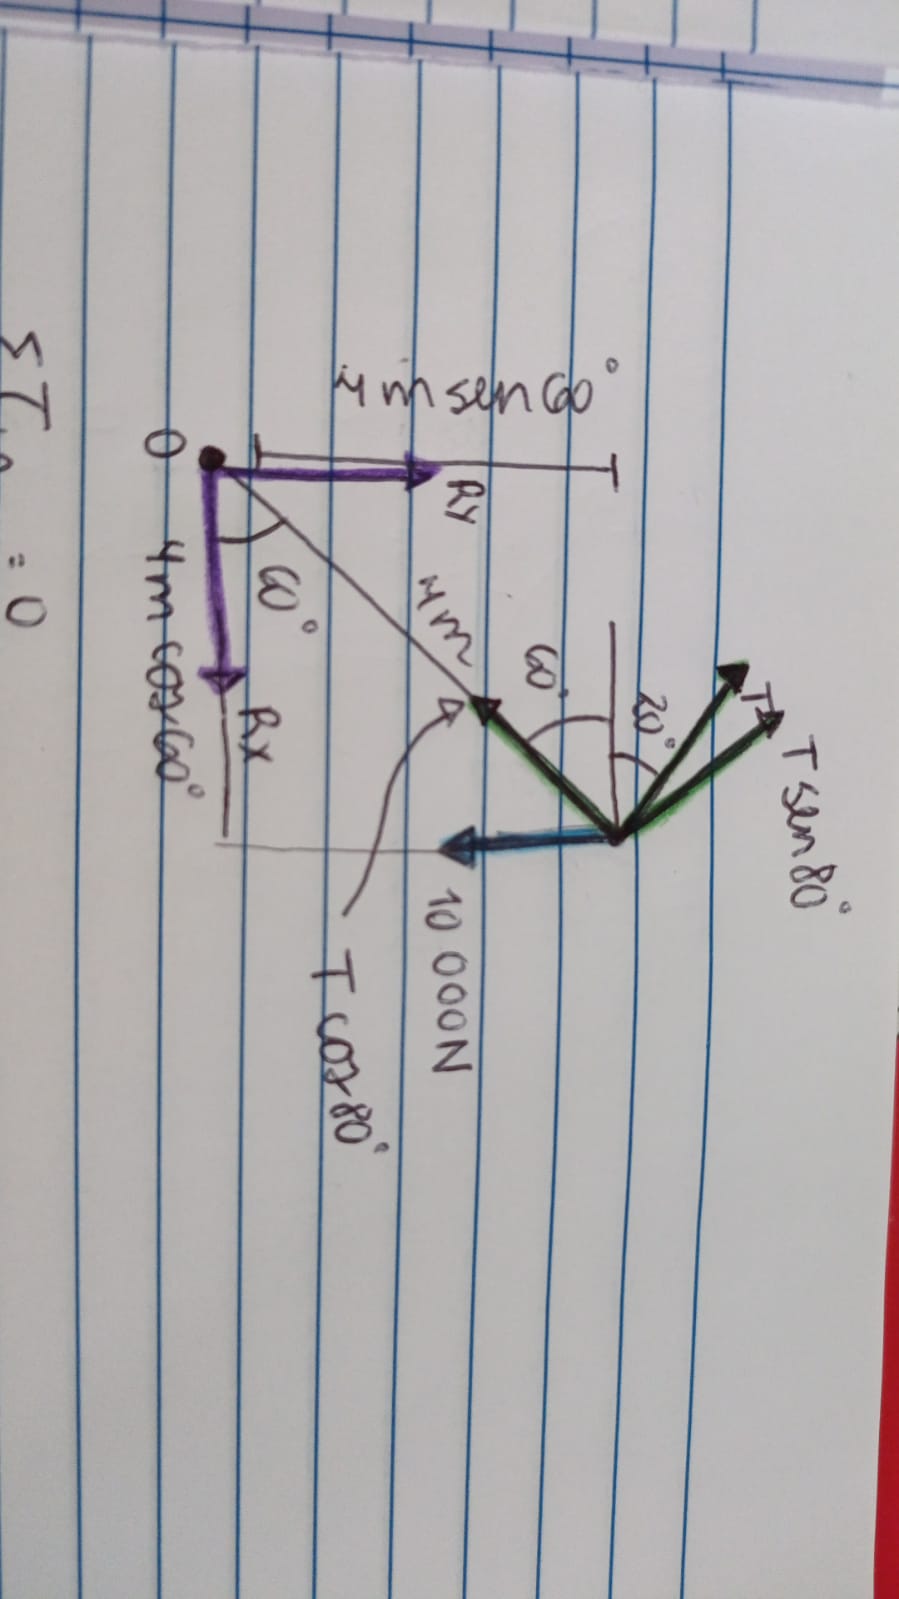 T sen 80°
T
20°
60°
4 m sen 60°
Ry
4m
10 000N
T cos 80°
60°
Rx
O
4m cos 60°
= 0